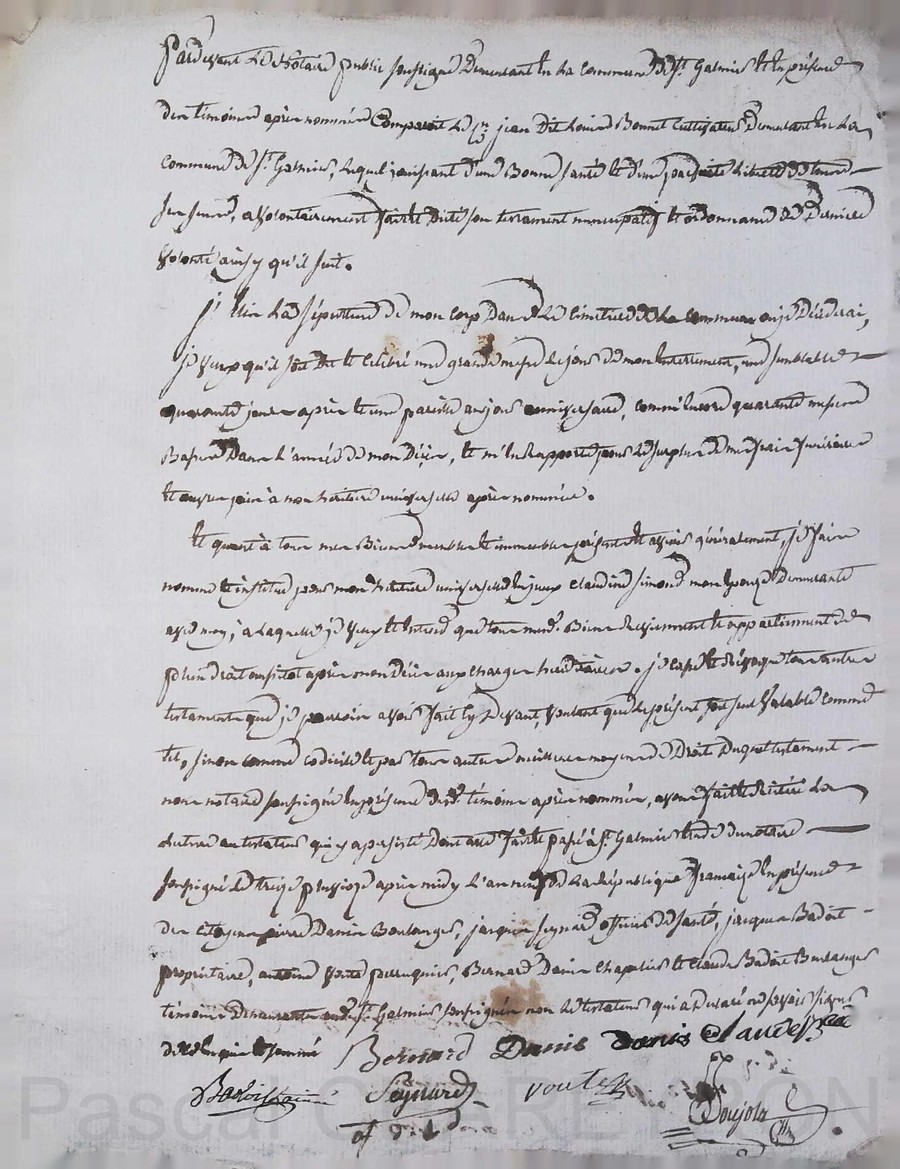 Pardevant Le Notaire public soussigné Demeurant En La Commune De St Galmier Et En présence
des témoins après nommés Comparoit Le Cen jean Dit Louis Bonnet Cultivateur Demeurant En La
Commune De St Galmier, Lequel jouissant d'une Bonne santé Et d'une parfaite Liberté de tous
ses sens, a volontairement fait Et dicté son testament noncupatif Et ordonnance De Dernière
Volonté ainsy qu'il suit.
j'élis La Sépulture de mon Corp Dans Le Cimetière de La Commune ou je Décéderai,
je veux qu'il soit Dit Et Célébré une grande messe Le jour De mon Enterrement, une semblable
quarante jours après Et une pareille au jour anniversaire, comm'Encore quarante messes
Basses Dans L'année De mon Décès, Et m'En Rapporte pour Le surplus De mes frais funéraires
Et œuvres pies à mon héritière universelle après nommée.
Et quant à tous mes Biens meubles Et immeubles présents Et avenir généralement, je fais
nomme Et institue pour mon héritière universelle Claudine Simond mon Epouse Demeurante
avec moy, à Laquelle je veux Et Entend que tous mesd. Biens Reviennent Et appartiennent De
plein Droit aussitot après mon Décès aux charges héréditaires. je Casse Et Révoque tous autres
testaments que je pourrois avoir fait Cy Devant, Voulant que Le présent soit seul Valable comme
tel, sinon comme codicile Et par tous autres meilleurs moyens De Droit Duquel testament
nous notaire soussigné En présence desd. témoins après nommés, avons fait Lecture La
au testateur qui y a persisté Dont acte fait Et passé à St Galmier Etude du notaire
soussigné Le treize pluviose après midy L'an neuf De La République française En présence
des Citoyens pierre Danis Boulanger, jacques Seynard officier De Santé, jacques Badoit
propriétaire, antoine Voute perruquier, Bernard Danis Chapelier Et Claude Badoit Boulanger
témoins Demeurants aud. St Galmier soussignés non Le testateur qui a Déclaré ne savoir signer
de ce Enquis Et sommé
Bernard Danis Danis Claude
Badoit Seynard voute
of. de
Poujola
Pascal